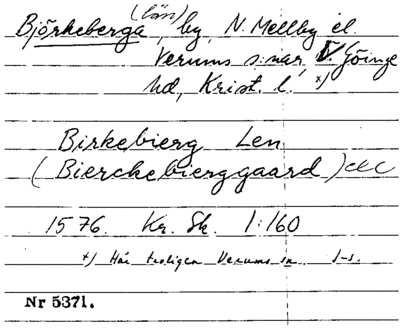 (län)
Björkeberga, by, N. Mellby el.
Verums s:nar, V. Göinge
hd, Krist. l. x)
Birkebierg Len
(Bierckebierggaard)
1576. Kr. Sk. 1:160
x) Här troligen Verums sn. J-s.
Nr 5371.